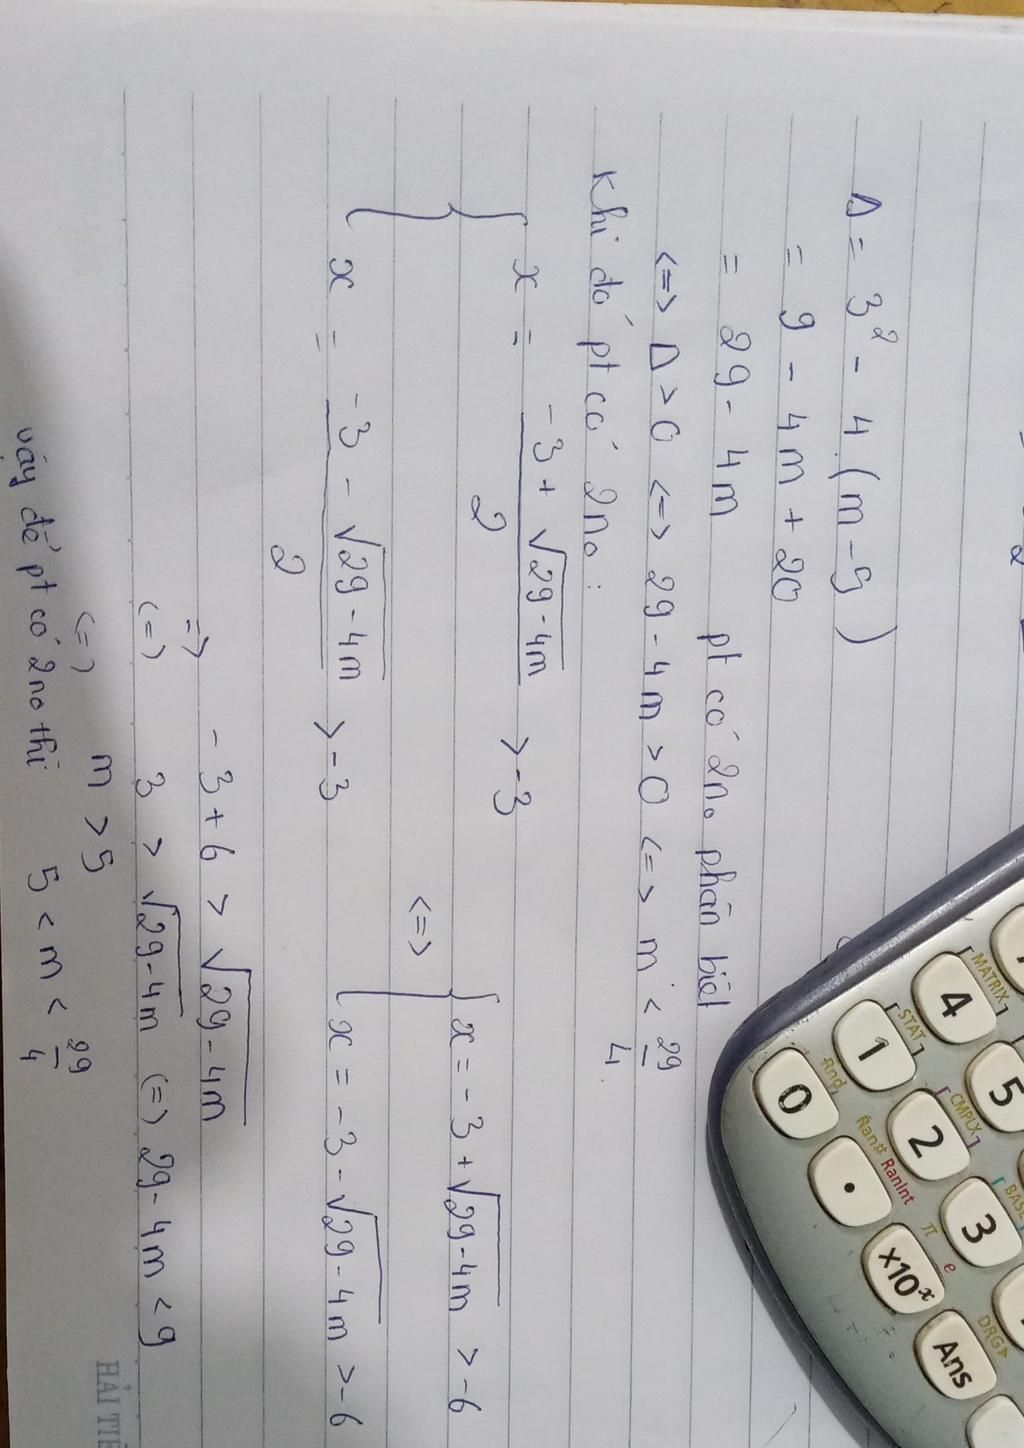 Δ = 3² - 4(m - 5)
= 9 - 4m + 20
= 29 - 4m pt có 2no phân biệt
<=> Δ > 0 <=> 29 - 4m > 0 <=> m < 29/4
Khi đó pt có 2no:
{ x = (-3 + √(29 - 4m))/2 > -3
{ x = (-3 - √(29 - 4m))/2 > -3
<=> { x = -3 + √(29 - 4m) > -6
{ x = -3 - √(29 - 4m) > -6
=> -3 + 6 > √(29 - 4m)
(=) 3 > √(29 - 4m) (=) 29 - 4m < 9
(=) m > 5
vậy để pt có 2no thì 5 < m < 29/4
MATRIX
4
5
STAT
1
CMPLX
2
BASE
3
0
Rnd
.
Ran#
RanInt
π
e
×10ˣ
DRG▸
Ans
HẢI TIẾ